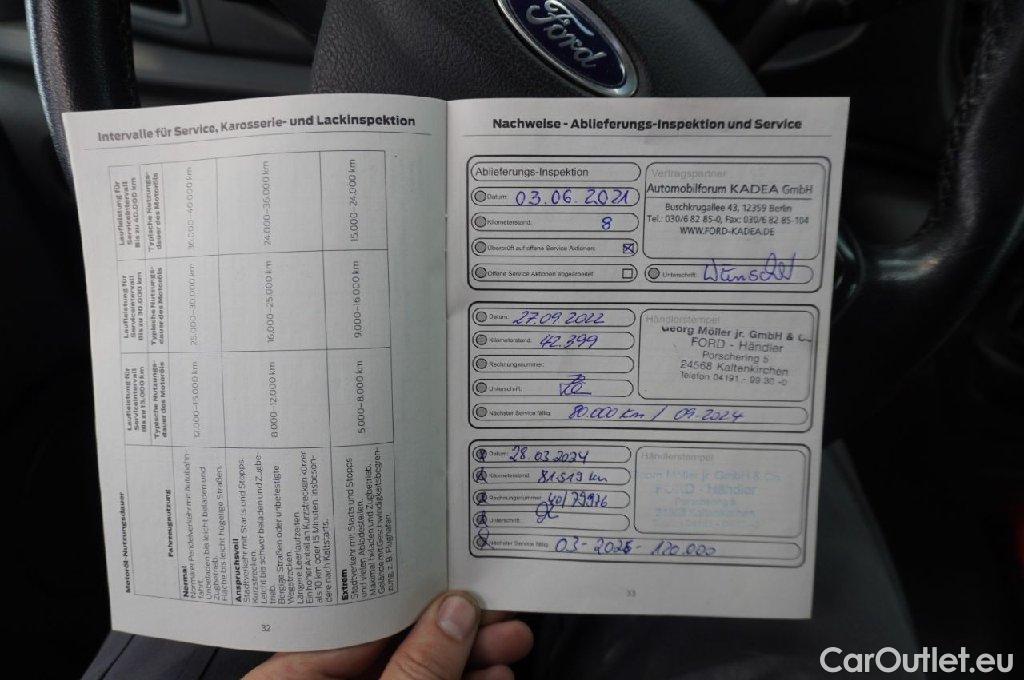 Ford
Intervalle für Service, Karosserie- und Lackinspektion
Motoröl-Nutzungsdauer
Laufleistung für Serviceintervall Bis zu 15.000 km
Laufleistung für Serviceintervall Bis zu 30.000 km
Laufleistung für Serviceintervall Bis zu 40.000 km
Fahrzeugnutzung
Typische Nutzungsdauer des Motoröls
Typische Nutzungsdauer des Motoröls
Typische Nutzungsdauer des Motoröls
Normal
Normaler Pendelverkehr mit Autobahnfahrt.
Unbeladen bis leicht beladen und Zugbetrieb.
Flache bis leicht hügelige Straßen.
12.000–15.000 km
25.000–30.000 km
36.000–40.000 km
Anspruchsvoll
Stadtverkehr mit Starts und Stopps.
Kurzstrecken.
Leicht bis schwer beladen und Zugbetrieb.
Bergige Straßen oder unbefestigte Wegstrecken.
Längere Leerlaufzeiten.
Ein hoher Anteil an Kurzstrecken kürzer als 10 km oder 15 Minuten, insbesondere nach Kaltstarts.
8.000–12.000 km
16.000–25.000 km
24.000–36.000 km
Extrem
Stadtverkehr mit Starts und Stopps und vielen
Maximal beladen und Zugbetrieb.
5.000–8.000 km
9.000–16.000 km
15.000–24.000 km
32
Nachweise - Ablieferungs-Inspektion und Service
Ablieferungs-Inspektion
Datum: 03.06.2021
Kilometerstand: 8
Überprüft auf offene Service Aktionen:
Offene Service Aktionen abgearbeitet
Vertragspartner
Automobilforum KADEA GmbH
Buschkrugallee 43, 12359 Berlin
Tel.: 030/6 82 85-0, Fax: 030/6 82 85-104
WWW.FORD-KADEA.DE
Unterschrift:
Datum: 27.09.2022
Kilometerstand: 42.399
Rechnungsnummer:
Unterschrift:
Nächster Service fällig: 80.000 km / 09.2024
Händlerstempel
Georg Möller jr. GmbH & C
FORD - Händler
Porschering 5
24568 Kaltenkirchen
Telefon 04191 - 99 30 -0
Datum: 28.03.2024
Kilometerstand: 81.513 km
Rechnungsnummer:
Unterschrift:
Nächster Service fällig: 03-2026 - 120.000
Händlerstempel
Möller jr. GmbH & Co.
FORD - Händler
Porschering 5
24568 Kaltenkirchen
33
CarOutlet.eu